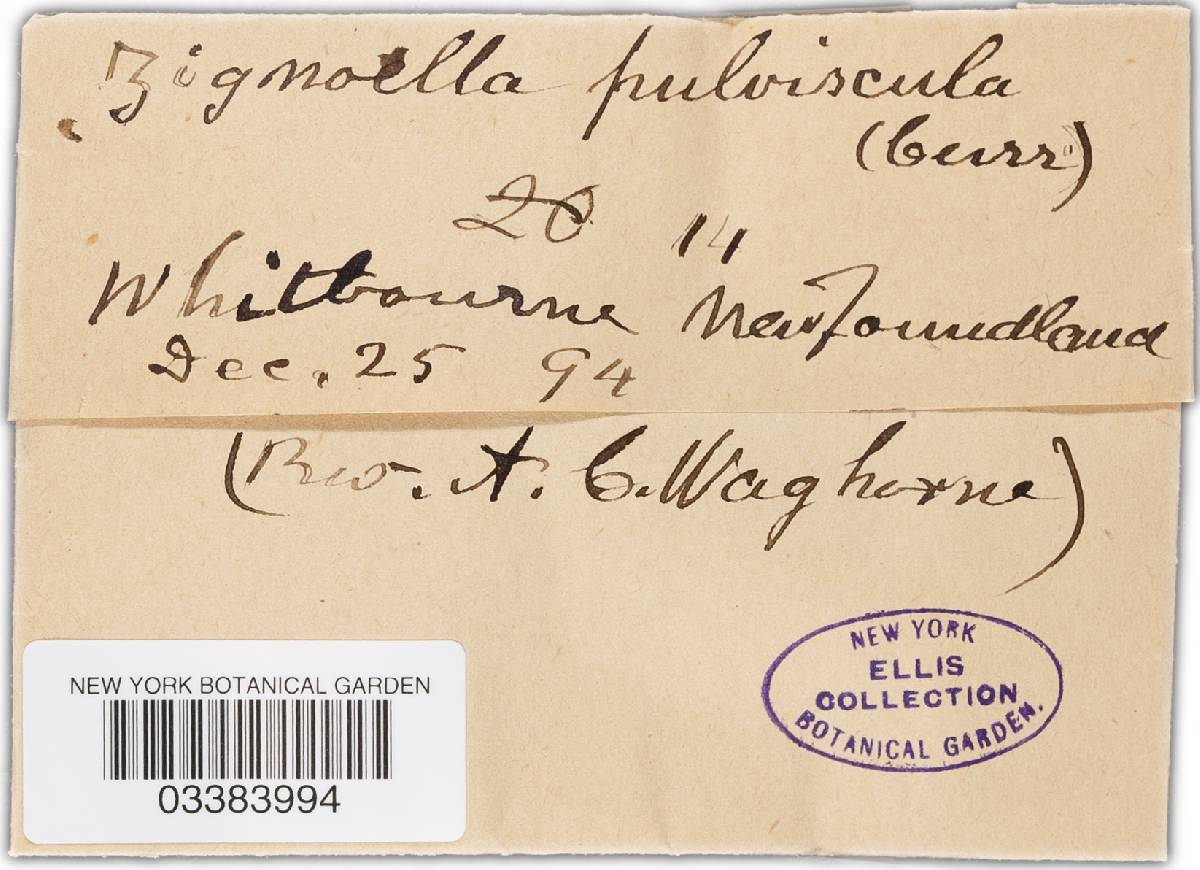 Zignoella pulviscula
(Curr)
20 14
Whitbourne Newfoundland
Dec. 25 94
(Rev. A. C. Waghorne)
NEW YORK
ELLIS
COLLECTION
BOTANICAL GARDEN.
NEW YORK BOTANICAL GARDEN
03383994